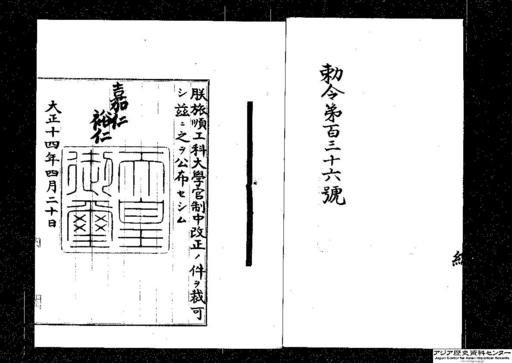 勅令第百三十六號
朕旅順工科大學官制中改正ノ件ヲ裁可
シ茲ニ之ヲ公布セシム
嘉仁
裕仁
天皇御璽
大正十四年四月二十日
アジア歴史資料センター
Japan Center for Asian Historical Records